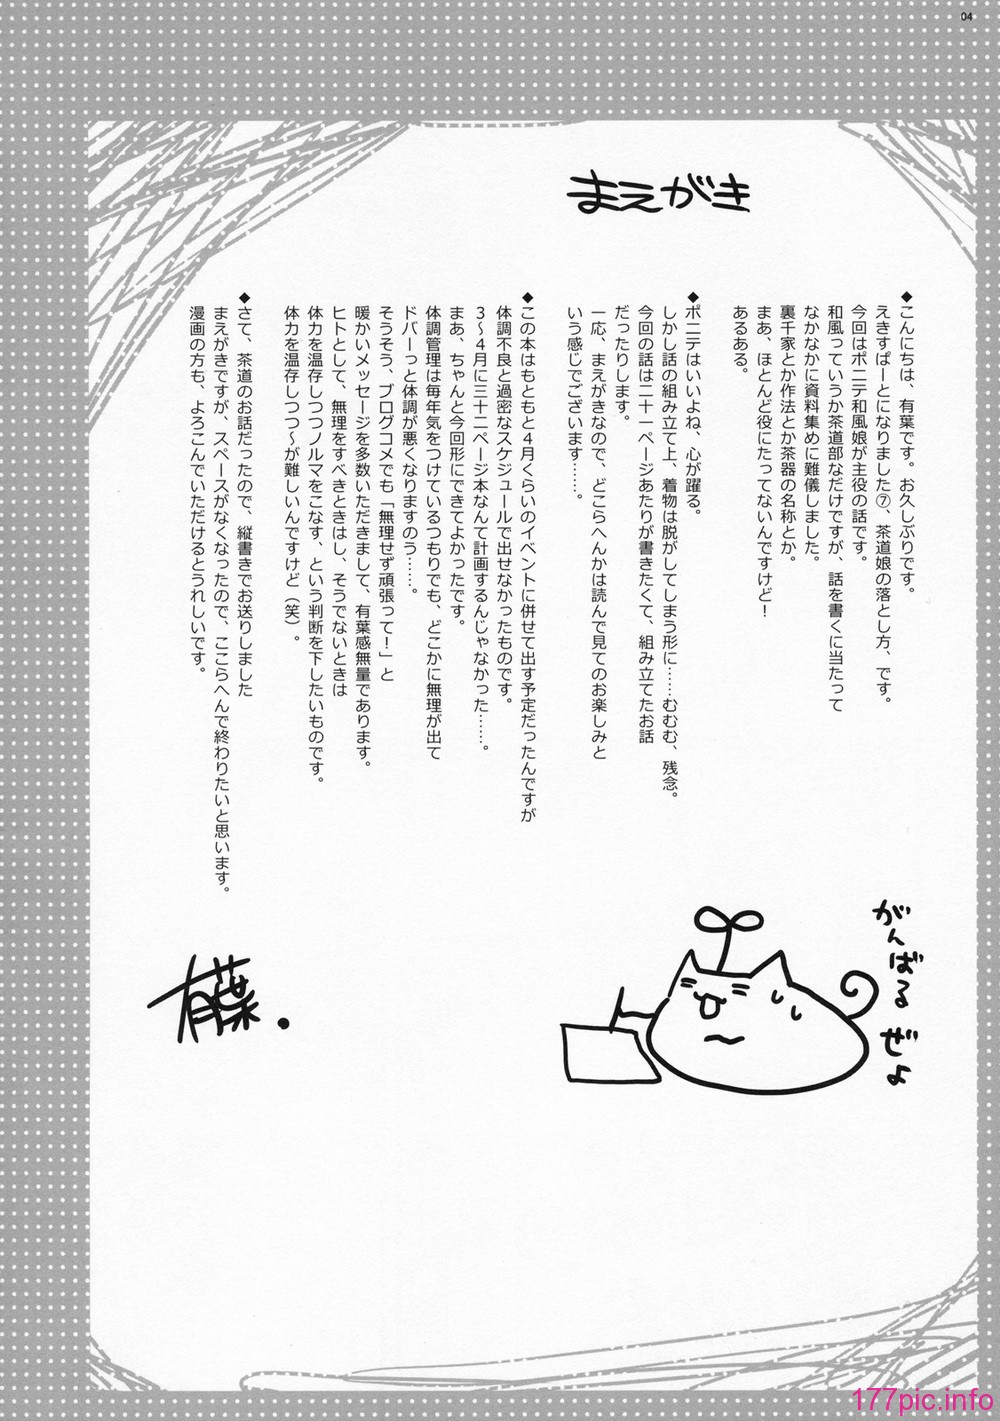 04
まえがき
◆こんにちは、有葉です。お久しぶりです。
えきすぱーとになりました⑦、茶道娘の落とし方、です。
今回はポニテ和風娘が主役の話です。
和風っていうか茶道部なだけですが、話を書くに当たって
なかなかに資料集めに難儀しました。
裏千家とか作法とか茶器の名称とか。
まあ、ほとんど役にたってないんですけど！
あるある。
◆ポニテはいいよね、心が躍る。
しかし話の組み立て上、着物は脱がしてしまう形に……むむむ、残念。
今回の話は二十一ページあたりが書きたくて、組み立てたお話
だったりします。
一応、まえがきなので、どこらへんかは読んで見てのお楽しみと
いう感じでございます……。
◆この本はもともと４月くらいのイベントに併せて出す予定だったんですが
体調不良と過密なスケジュールで出せなかったものです。
３～４月に三十二ページ本なんて計画するんじゃなかった……。
まあ、ちゃんと今回形にできてよかったです。
体調管理は毎年気をつけているつもりでも、どこかに無理が出て
ドバーっと体調が悪くなりますのう……。
そうそう、ブログコメでも「無理せず頑張って！」と
暖かいメッセージを多数いただきまして、有葉感無量であります。
ヒトとして、無理をすべきときはし、そうでないときは
体力を温存しつつノルマをこなす、という判断を下したいものです。
体力を温存しつつ～が難しいんですけど（笑）。
◆さて、茶道のお話だったので、縦書きでお送りしました
まえがきですが、スペースがなくなったので、ここらへんで終わりたいと思います。
漫画の方も、よろこんでいただけるとうれしいです。
がんばるぜよ
有葉．
177pic.info